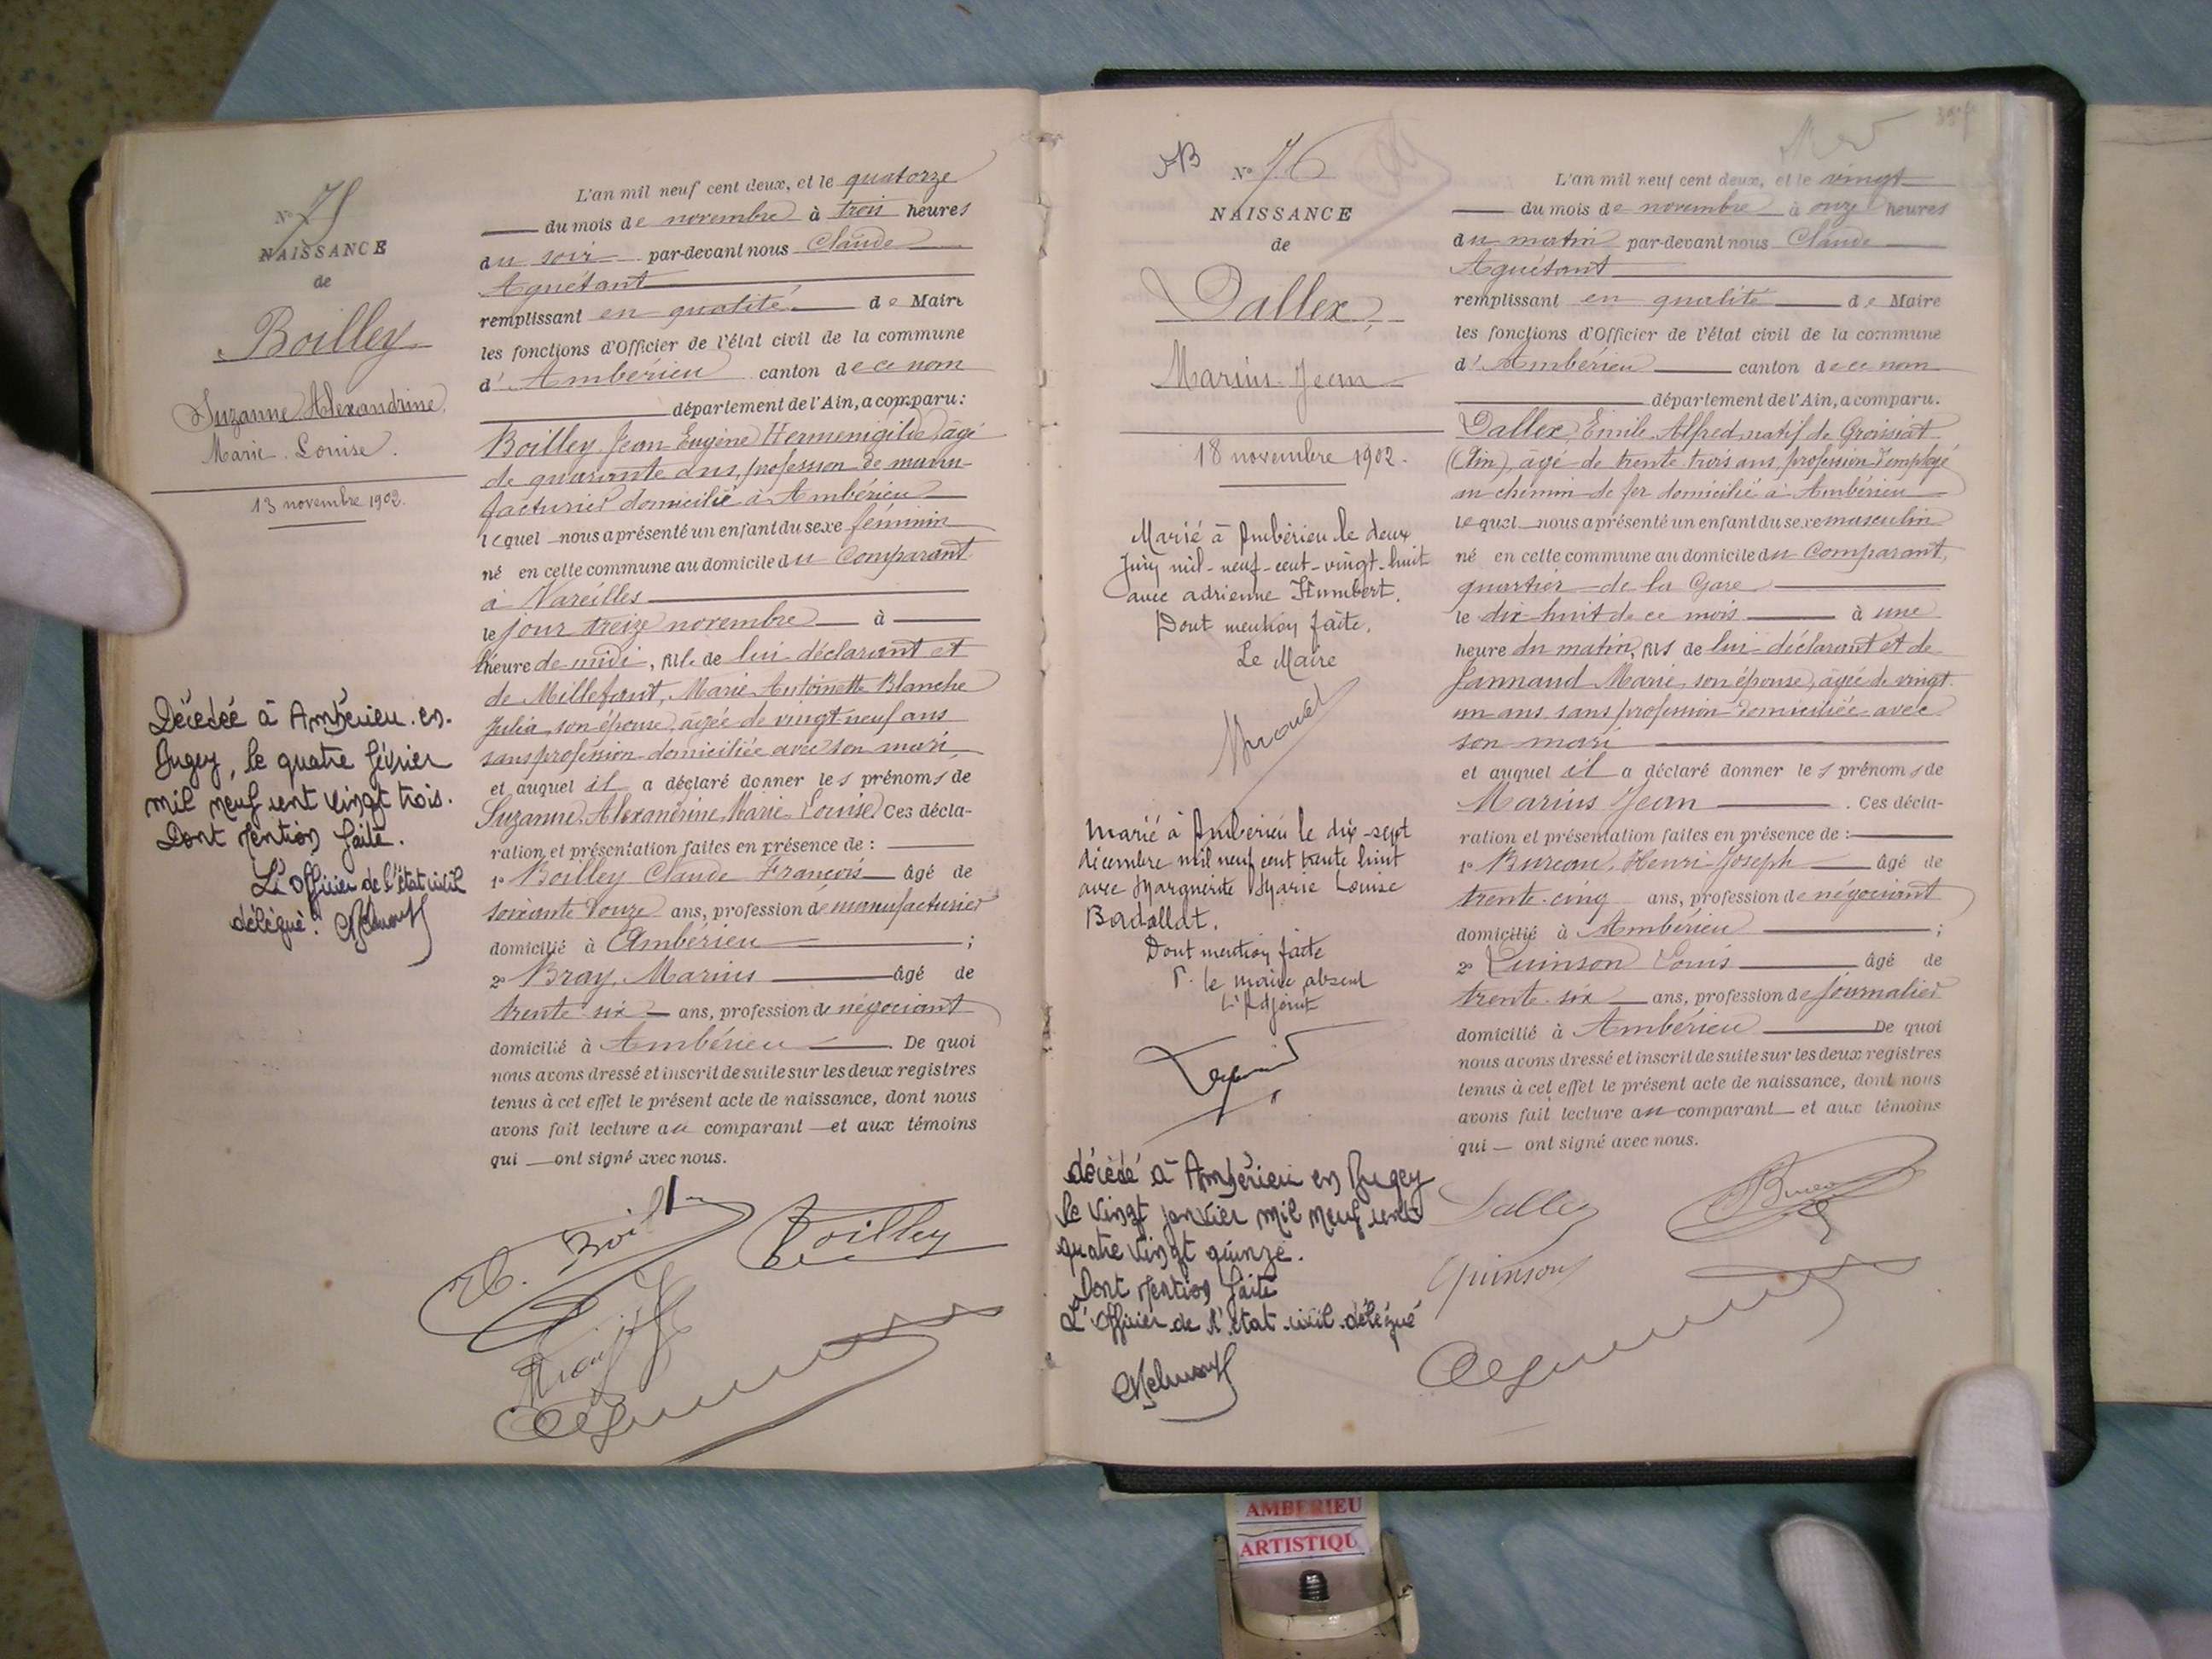 N° 75
NAISSANCE
de
Boilley
Suzanne Alexandrine
Marie Louise.
13 novembre 1902.
Décédée à Ambérieu-en-
Bugey, le quatre février
mil neuf cent vingt trois.
Dont mention faite.
L'Officier de l'état civil
délégué.
L'an mil neuf cent deux, et le quatorze
du mois de novembre à trois heures
du soir par-devant nous Claude
Aguétant
remplissant en qualité de Maire
les fonctions d'Officier de l'état civil de la commune
d'Ambérieu canton de ce nom
département de l'Ain, a comparu:
Boilley Jean Eugène Hermenigilde, âgé
de quarante ans, profession de manu-
facturier domicilié à Ambérieu
lequel nous a présenté un enfant du sexe féminin
né en cette commune au domicile du Comparant
à Vareilles
le jour treize novembre à
l'heure de midi, fille de lui déclarant et
de Millefaut, Marie Antoinette Blanche
Julia, son épouse, âgée de vingt neuf ans
sans profession domiciliée avec son mari
et auquel il a déclaré donner les prénoms de
Suzanne, Alexandrine, Marie-Louise. Ces décla-
ration et présentation faites en présence de :
1° Boilley Claude François âgé de
soixante douze ans, profession de manufacturier
domicilié à Ambérieu ;
2° Bray, Marius âgé de
trente six ans, profession de négociant
domicilié à Ambérieu. De quoi
nous avons dressé et inscrit de suite sur les deux registres
tenus à cet effet le présent acte de naissance, dont nous
avons fait lecture au comparant et aux témoins
qui ont signé avec nous.
Boilley
N° 76
NAISSANCE
de
Dallex,
Marius Jean
18 novembre 1902.
Marié à Ambérieu le deux
Juin mil-neuf-cent-vingt-huit
avec adrienne Humbert.
Dont mention faite.
Le Maire
Marié à Ambérieu le dix-sept
décembre mil neuf cent trente huit
avec Marguerite Marie Louise
Badollat.
Dont mention faite
P. le maire absent
L'Adjoint
décédé à Ambérieu en Bugey
le vingt janvier mil neuf cent
quatre vingt quinze.
Dont mention faite
L'Officier de l'état civil délégué
L'an mil neuf cent deux, et le vingt
du mois de novembre à onze heures
du matin par-devant nous Claude
Aguétant
remplissant en qualité de Maire
les fonctions d'Officier de l'état civil de la commune
d'Ambérieu canton de ce nom
département de l'Ain, a comparu.
Dallex, Emile Alfred natif de Groissiat
(Ain), âgé de trente trois ans, profession d'employé
au chemin de fer domicilié à Ambérieu
lequel nous a présenté un enfant du sexe masculin
né en cette commune au domicile du Comparant,
quartier de la Gare
le dix huit de ce mois à une
heure du matin, fils de lui déclarant et de
Jannaud Marie, son épouse, âgée de vingt
un ans, sans profession domiciliée avec
son mari
et auquel il a déclaré donner les prénoms de
Marius Jean. Ces décla-
ration et présentation faites en présence de :
1° Bureau, Henri-Joseph âgé de
trente-cinq ans, profession de négociant
domicilié à Ambérieu ;
2° Quinson Louis âgé de
trente-six ans, profession de journalier
domicilié à Ambérieu De quoi
nous avons dressé et inscrit de suite sur les deux registres
tenus à cet effet le présent acte de naissance, dont nous
avons fait lecture au comparant et aux témoins
qui ont signé avec nous.
Dallex
Quinson
AMBERIEU
ARTISTIQU